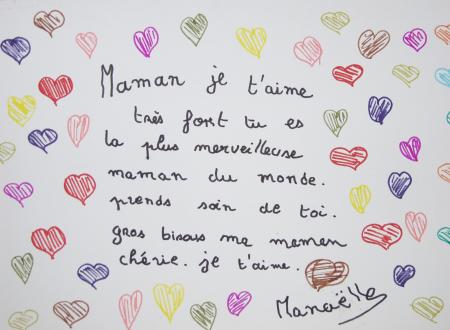 Maman je t'aime
très fort tu es
la plus merveilleuse
maman du monde.
prends soin de toi.
gros bisous ma maman
chérie. je t'aime.
Manaëlle